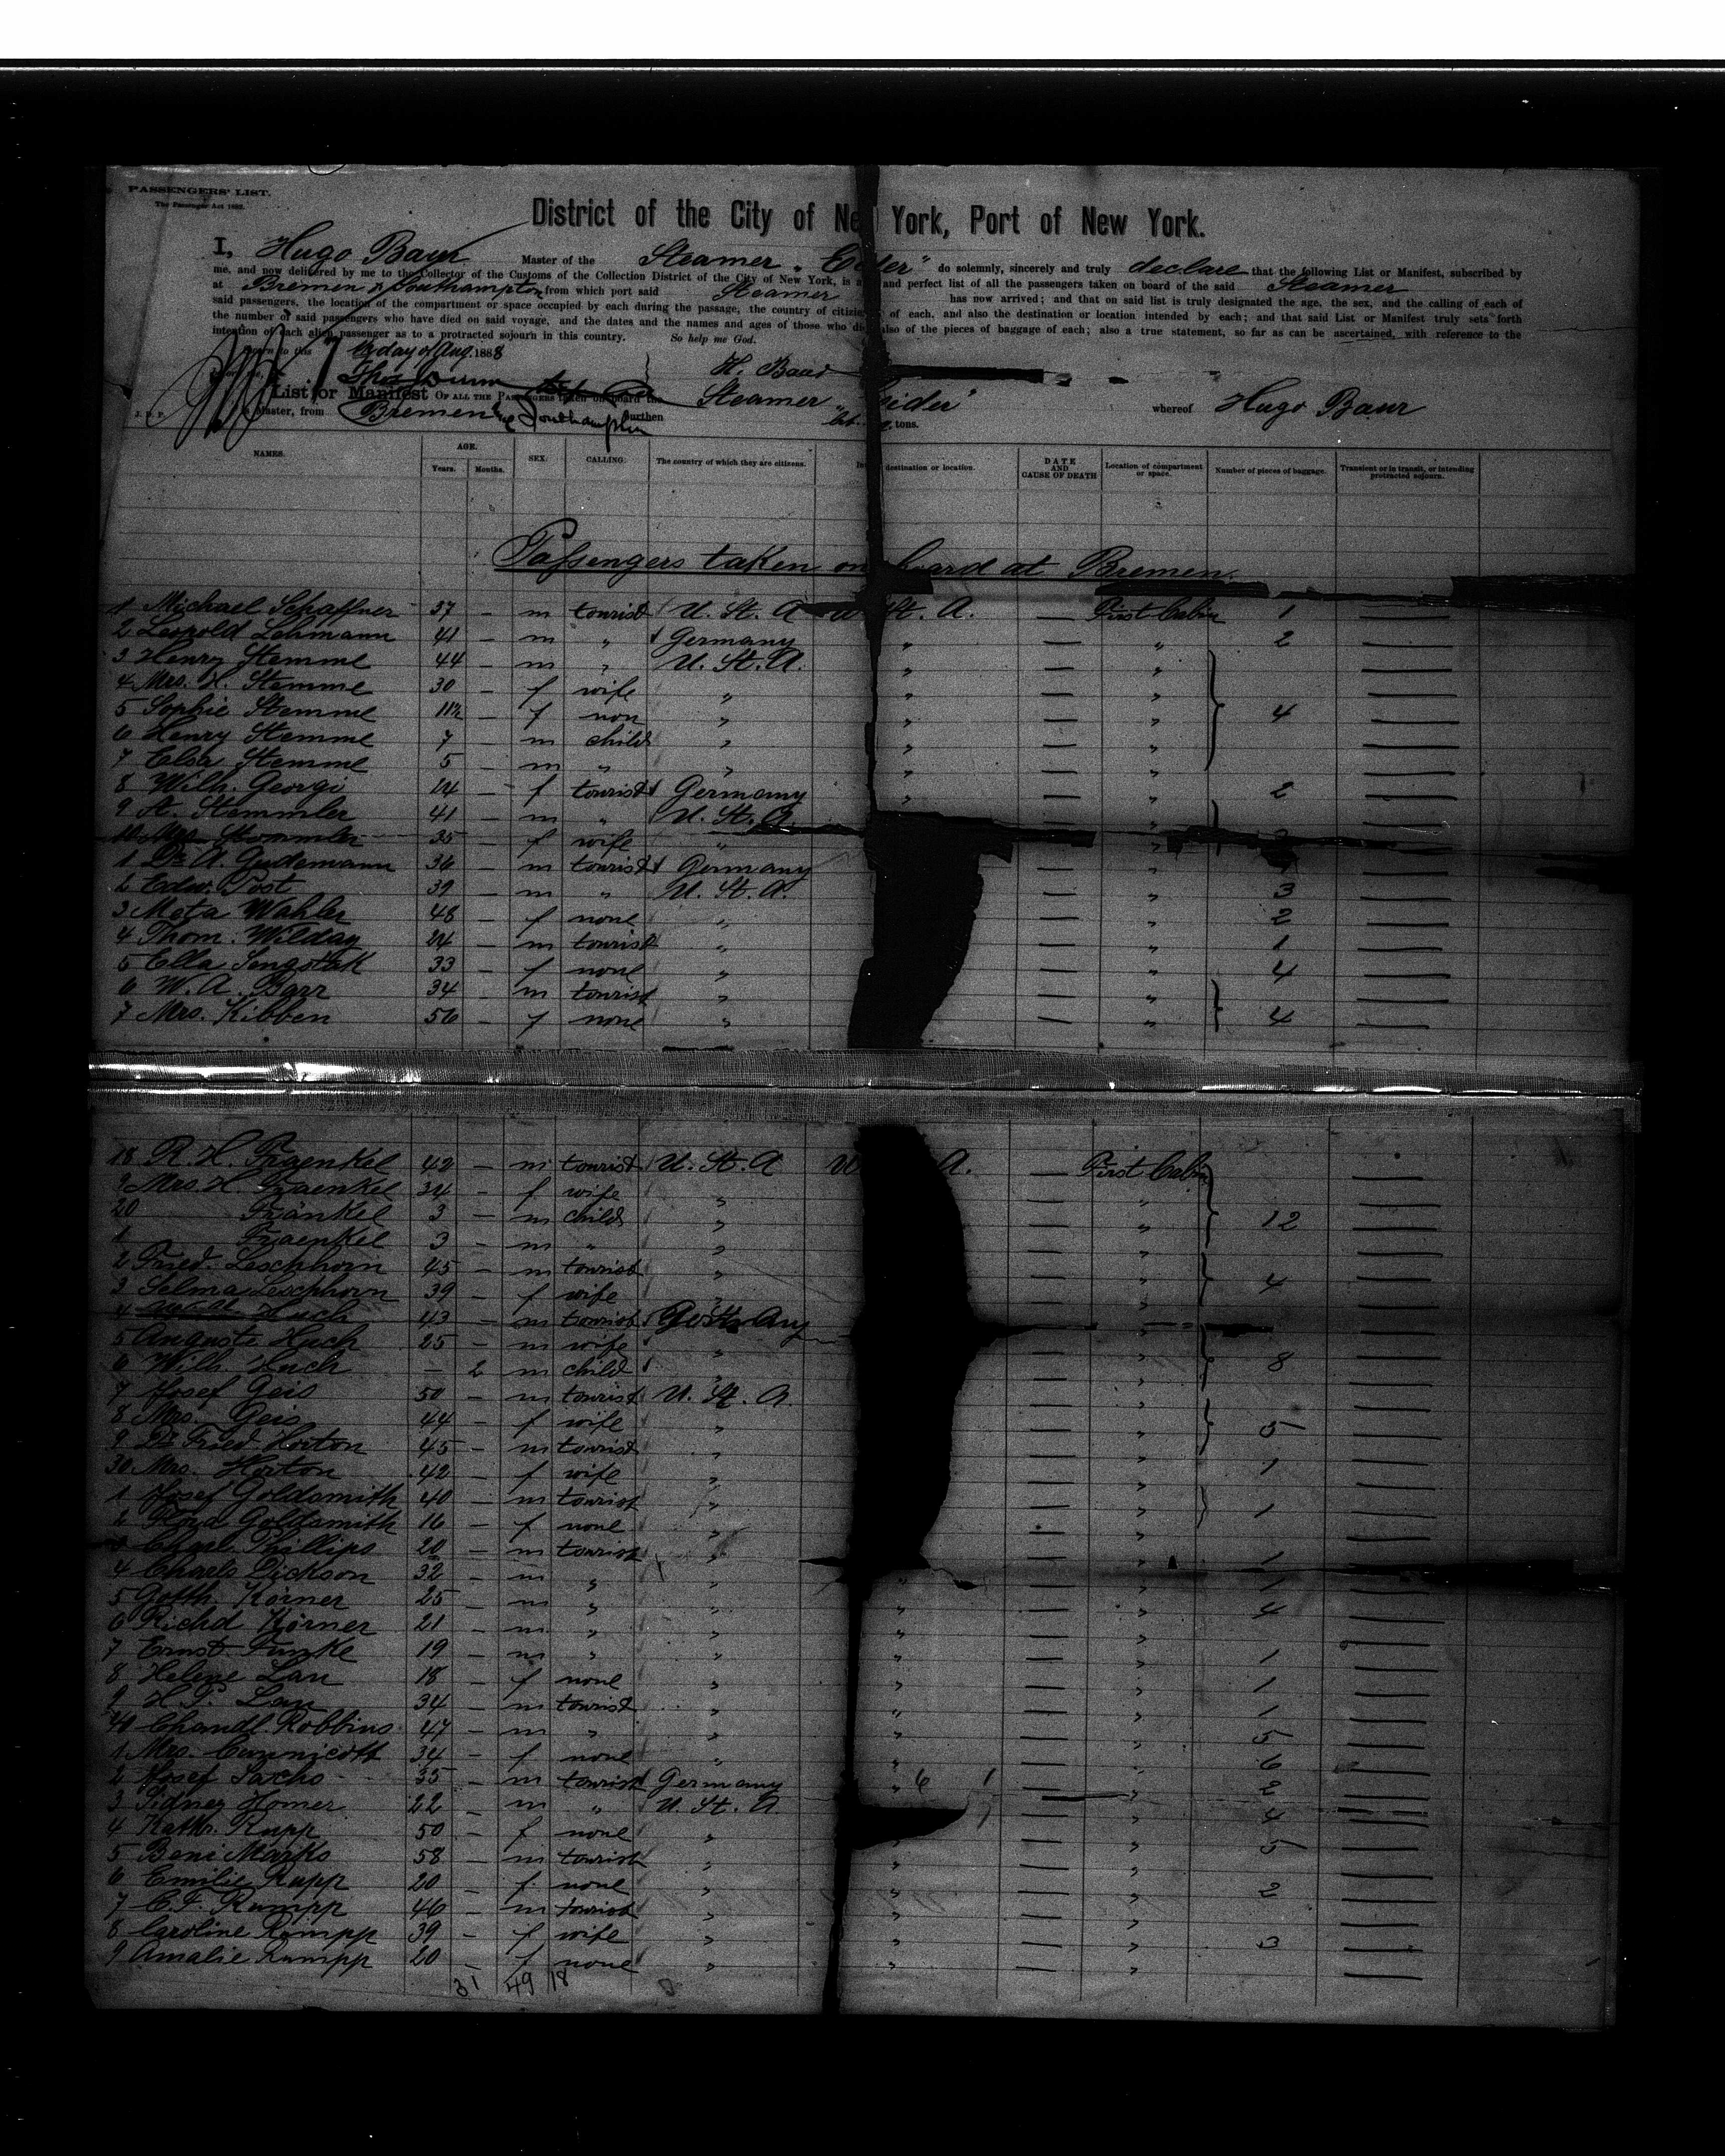 PASSENGERS' LIST.
The Passenger Act 1882.
District of the City of New York, Port of New York.
I, Hugo Baur Master of the Steamer „Eider" do solemnly, sincerely and truly declare that the following List or Manifest, subscribed by
me, and now delivered by me to the Collector of the Customs of the Collection District of the City of New York, is a and perfect list of all the passengers taken on board of the said Steamer
at Bremen & Southampton from which port said Steamer has now arrived; and that on said list is truly designated the age, the sex, and the calling of each of
said passengers, the location of the compartment or space occupied by each during the passage, the country of citizen of each, and also the destination or location intended by each; and that said List or Manifest truly sets forth
the number of said passengers who have died on said voyage, and the dates and the names and ages of those who di also of the pieces of baggage of each; also a true statement, so far as can be ascertained, with reference to the
intention of each alien passenger as to a protracted sojourn in this country. So help me God.
to this day of Aug. 1888
H. Baur
List or Manifest OF ALL THE PASSENGERS taken on board the Steamer „Eider" whereof Hugo Baur
is Master, from Bremen & Southampton burthen tons.
NAMES. AGE. Years. Months. SEX. CALLING. The country of which they are citizens. destination or location. DATE AND CAUSE OF DEATH Location of compartment or space. Number of pieces of baggage. Transient or in transit, or intending protracted sojourn.
Passengers taken on board at Bremen.
1 Michael Schaffner 37 — m tourist U. St. A U St. A. — First Cabin 1 —
2 Leopold Lehmann 41 — m „ Germany „ — „ 2 —
3 Henry Stemme 44 — m „ U. St. A. „ — „ —
4 Mrs. H. Stemme 30 — f wife „ „ — „ —
5 Sophie Stemme 11½ — f non „ „ — „ 4 —
6 Henry Stemme 7 — m child „ „ — „ —
7 Elsa Stemme 5 — m „ „ „ — „ —
8 Wilh. Georgi 24 — f tourist Germany „ — „ 2 —
9 A. Stemmler 41 — m „ U. St. A. — „ —
10 Mrs. Stemmler 35 — f wife „ „
1 Dr. A. Gudemann 36 — m tourist Germany — „ —
2 Edw. Post 39 — m „ U. St. A. — „ 3 —
3 Meta Wahler 48 — f none „ — „ 2 —
4 Thom. Wilday 24 — m tourist „ — „ 1 —
5 Ella Sengstak 33 — f none „ — „ 4 —
6 W. A. Barr 34 — m tourist „ — „ —
7 Mrs. Kibben 56 — f none „ — „ 4 —
18 R. H. Fraenkel 42 — m tourist U. St. A U A. — First Cabin —
9 Mrs. H. Fraenkel 34 — f wife „ — „ —
20 Fränkel 3 — m child „ — „ 12 —
1 Fraenkel 3 — m „ „ — „ —
2 Fried. Leschhorn 45 — m tourist „ — „ —
3 Selma Leschhorn 39 — f wife „ — „ 4 —
4 Huch 43 — m tourist Germany —
5 Auguste Huch 25 — m wife „ — „ —
6 Wilh. Huch — 2 m child „ — „ 8 —
7 Josef Geis 50 — m tourist U. St. A. — „ —
8 Mrs. Geis 44 — f wife „ — „ —
9 Dr. Fried Horton 45 — m tourist „ — „ 5 —
30 Mrs. Horton 42 — f wife „ — „ 1 —
1 Josef Goldsmith 40 — m tourist „ — „ —
2 Flora Goldsmith 16 — f none „ — „ 1 —
3 Phillips 20 — m tourist „ — „ 1 —
4 Charls Dickson 32 — m „ „ „ — „ 1 —
5 Gotth. Körner 25 — m „ „ „ — „ 4 —
6 Richd Körner 21 — m „ „ „ — „ —
7 Ernst Funke 19 — m „ „ „ — „ 1 —
8 Helene Lau 18 — f none „ „ — „ 1 —
9 H. F. Lau 34 — m tourist „ „ — „ 1 —
40 Chandl. Robbins 47 — m „ „ „ — „ 5 —
1 Mrs. Cunnicott 34 — f none „ „ — „ 6 —
2 Josef Sachs 35 — m tourist Germany „ 6 1 — „ 2 —
3 Sidney Homer 22 — m „ U. St. A. — „ 4 —
4 Kathr. Rupp 50 — f none „ „ — „ 5 —
5 Beni Marks 58 — m tourist „ „ — „ —
6 Emilie Rupp 20 — f none „ „ — „ 2 —
7 C. F. Rumpp 46 — m tourist „ „ — „ —
8 Caroline Rumpp 39 — f wife „ „ — „ 3 —
9 Amalie Rumpp 20 f none „ „ — „ —
31 49 18